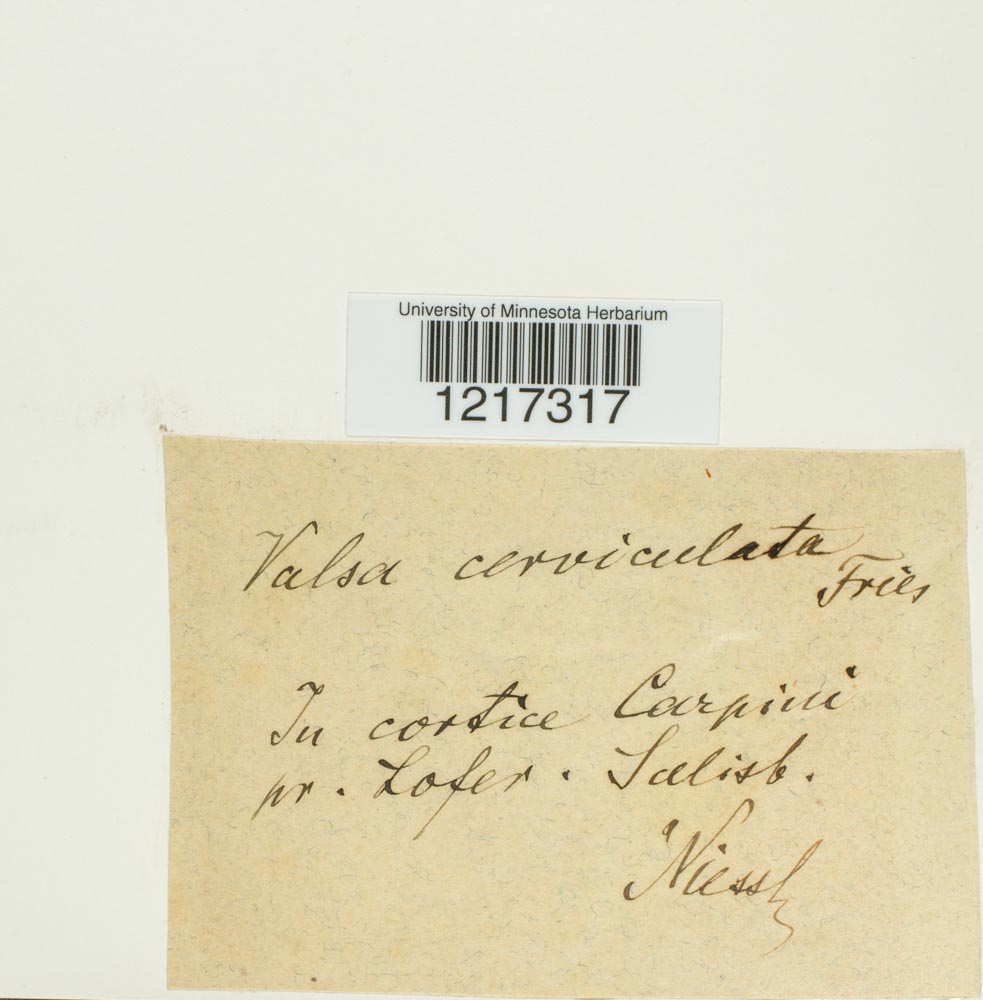 University of Minnesota Herbarium
1217317
Valsa cerviculata
Fries
In cortice Carpini
pr. Lofer. Salisb.
Niessl